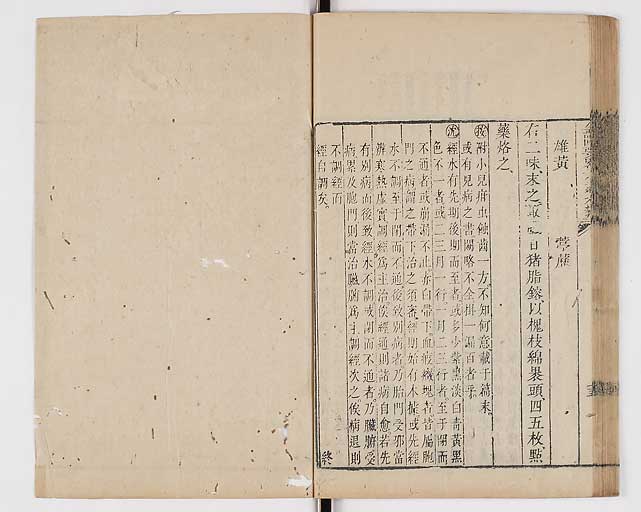 雄黃 葶藶
右二味末之取臘日猪脂鎔以槐枝綿裹頭四五枚點
藥烙之
按附小兒疳虫蝕齒一方不知何意載于篇末
或有兒病之書闕略不全掛一漏百者乎
沈經水有先期後期而至者或多少紫黑淡白青黃黑
色不一者或二三月一行一月二三行者至于閉而
不通者或崩漏不止赤白帶下血瘕癥塊者皆屬胞
門之病謂之帶下治之須審經期始有木據或先經
水不調至于閉而不通後致別病者乃胎門受邪當
辨寒熱虛實調經爲主治俟經通則諸病自愈若先
有別病而後致經水不調或閉而不通者乃臟腑受
病累及胞門則當治臟腑爲主調經次之俟病退則
不調經而
經自調矣
終